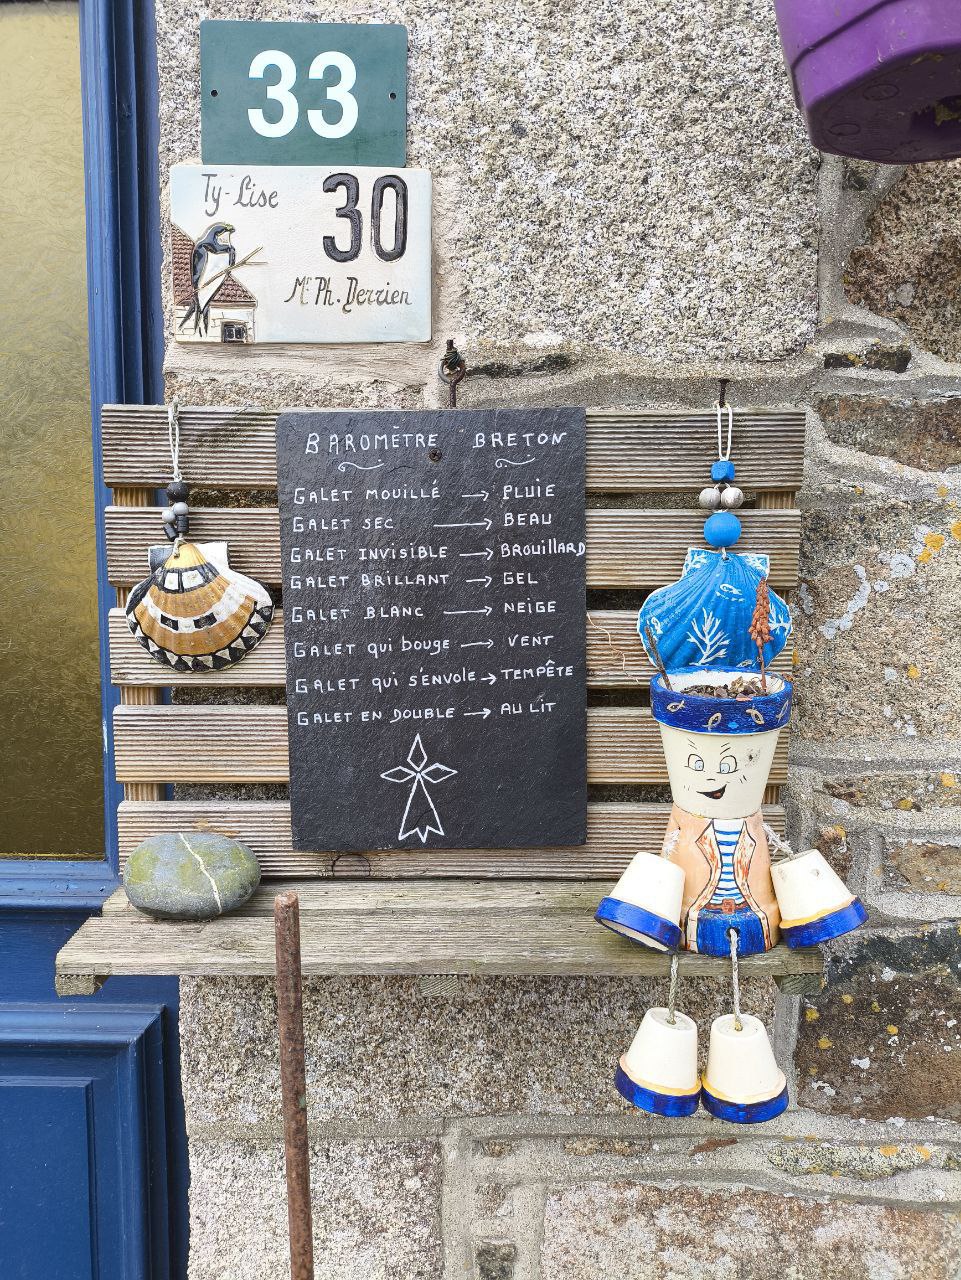 33
Ty-Lise
30
Mr Ph. Derrien
BAROMÈTRE BRETON
GALET MOUILLÉ → PLUIE
GALET SEC → BEAU
GALET INVISIBLE → BROUILLARD
GALET BRILLANT → GEL
GALET BLANC → NEIGE
GALET qui bouge → VENT
GALET qui s'ENVOLE → TEMPÊTE
GALET EN DOUBLE → AU LIT